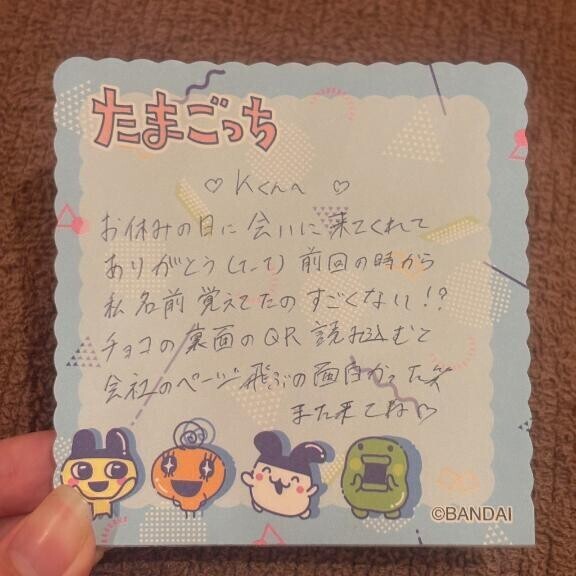 たまごっち
♡ Kくんへ ♡
お休みの日に会いに来てくれて
ありがとう(T-T) 前回の時から
私名前覚えてたのすごくない!?
チョコの裏面のQR読み込むと
会社のページ飛ぶの面白かった笑
また来てね♡
©BANDAI